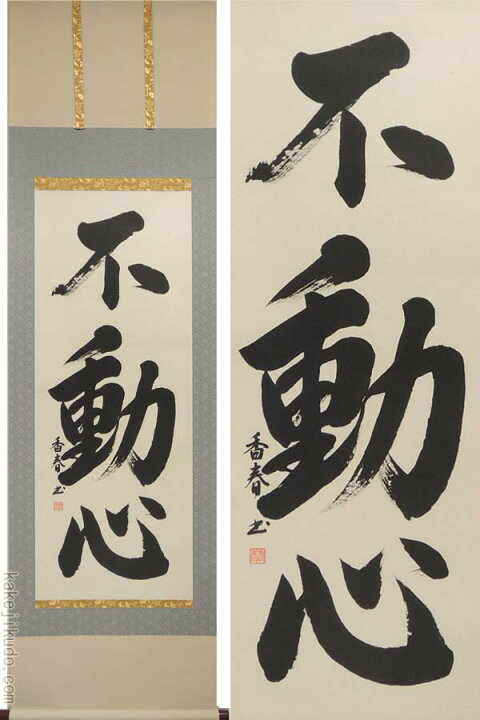 不動心
香春书
不動心
香春书
kakejikudo.com